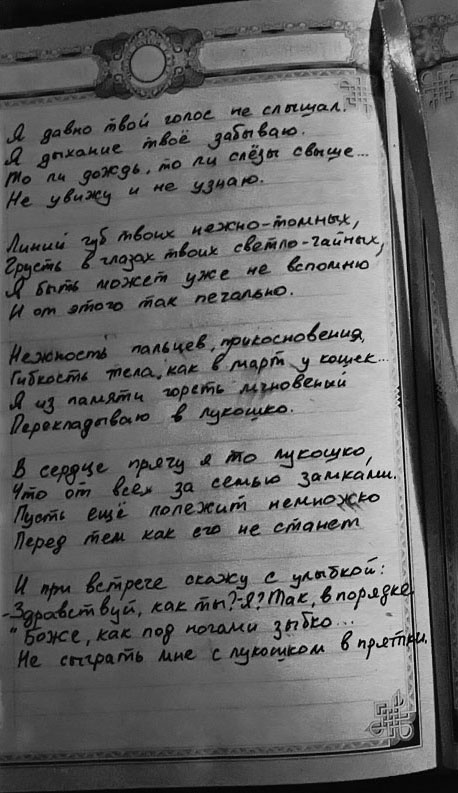 Я давно твой голос не слышал.
Я дыхание твоё забываю.
То ли дождь, то ли слёзы свыше...
Не увижу и не узнаю.
Линий губ твоих нежно-томных,
Грусть в глазах твоих светло-чайных,
Я быть может уже не вспомню
И от этого так печально.
Нежность пальцев, прикосновения,
Гибкость тела, как в март у кошек...
Я из памяти гореть мгновений
Перекладываю в лукошко.
В сердце прячу я то лукошко,
Что от всех за семью замками.
Пусть ещё полежит немножко
Перед тем как его не станет
И при встрече скажу с улыбкой:
-Здравствуй, как ты?-Я? Так, в порядке
"Боже, как под ногами зыбко...
Не сыграть мне с лукошком в прятки.